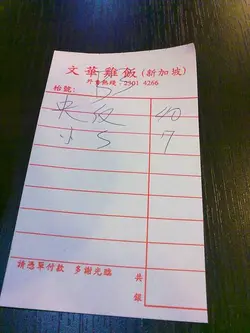 文華雞飯(新加坡)
外賣熱綫:2501 4266
枱號:
40
小 7
請憑單付款 多謝光臨 共銀